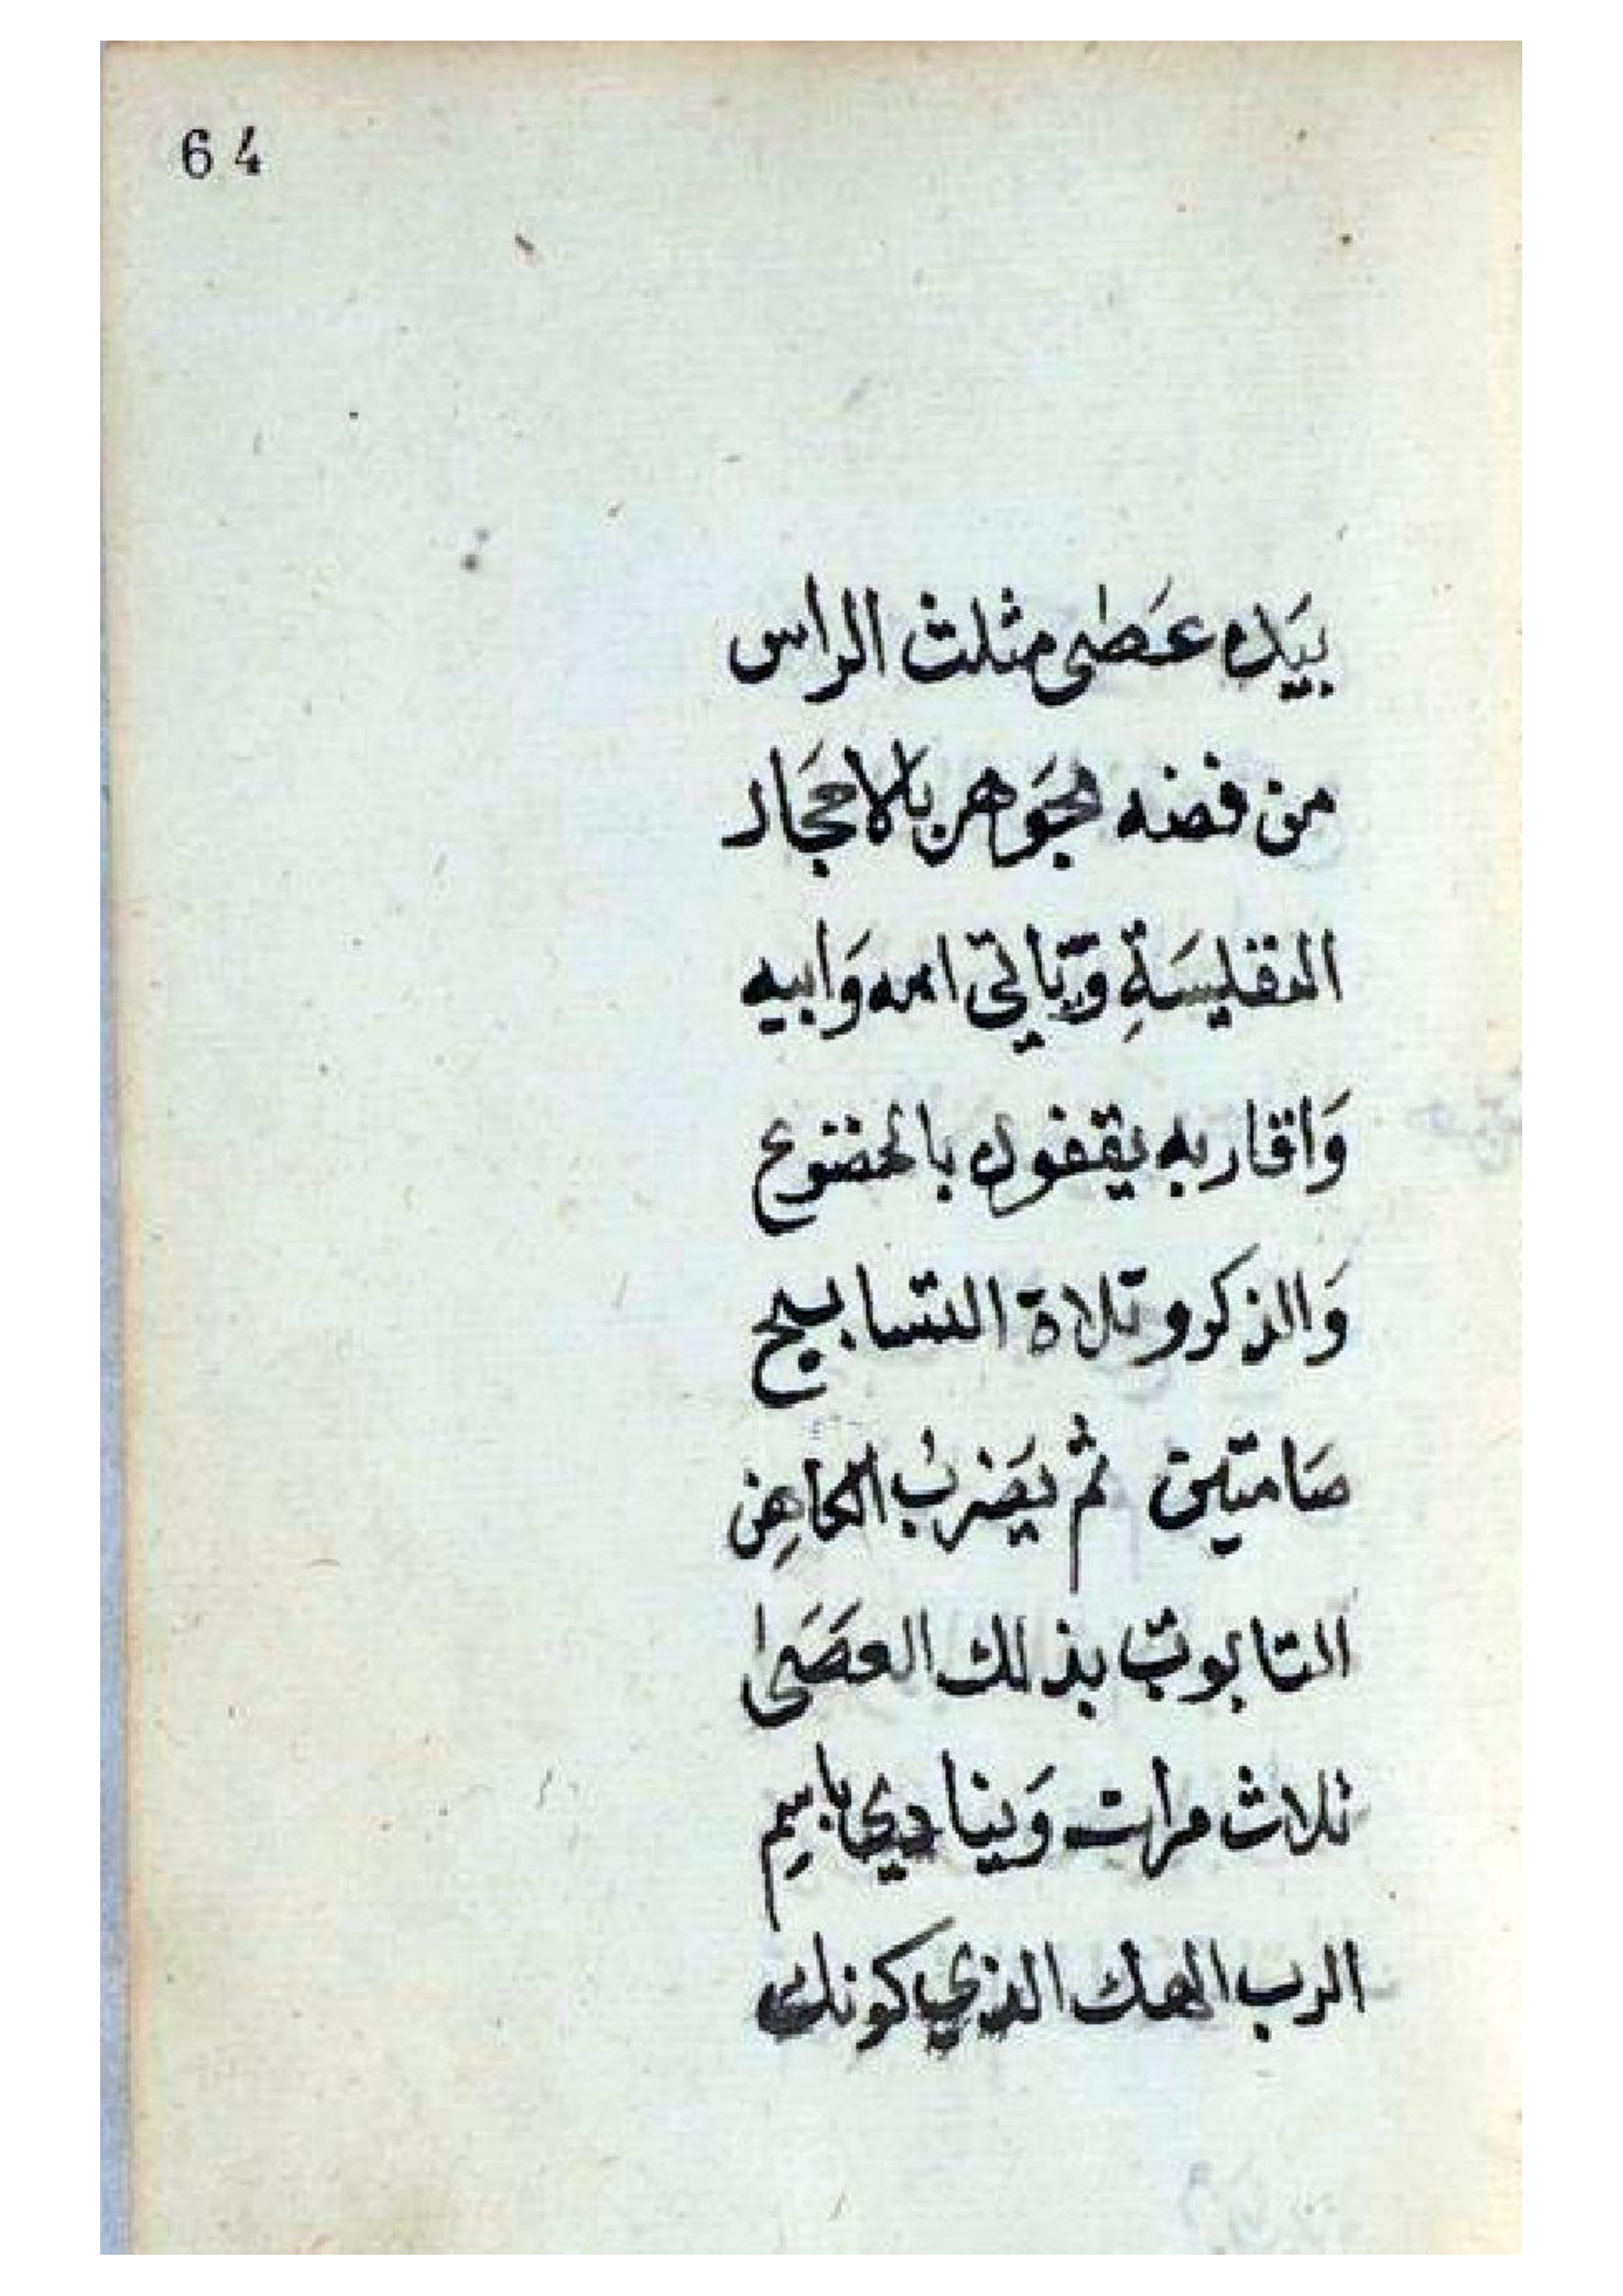 64
بيَده عَصٰى مثلث الراس
من فضه مجَوهر بالاحجَار
النفليسَةِ وَتيَاتي امه وَابيه
وَاقاربه يقفون بالخضوع
وَالذكر وتلاة التسابيح
صَامتين ثم يَضربُ الكاهِن
التابوت بذلك العصَىٰ
ثلاث مرات وَينادي باسِم
الرب الهك الذي كونك